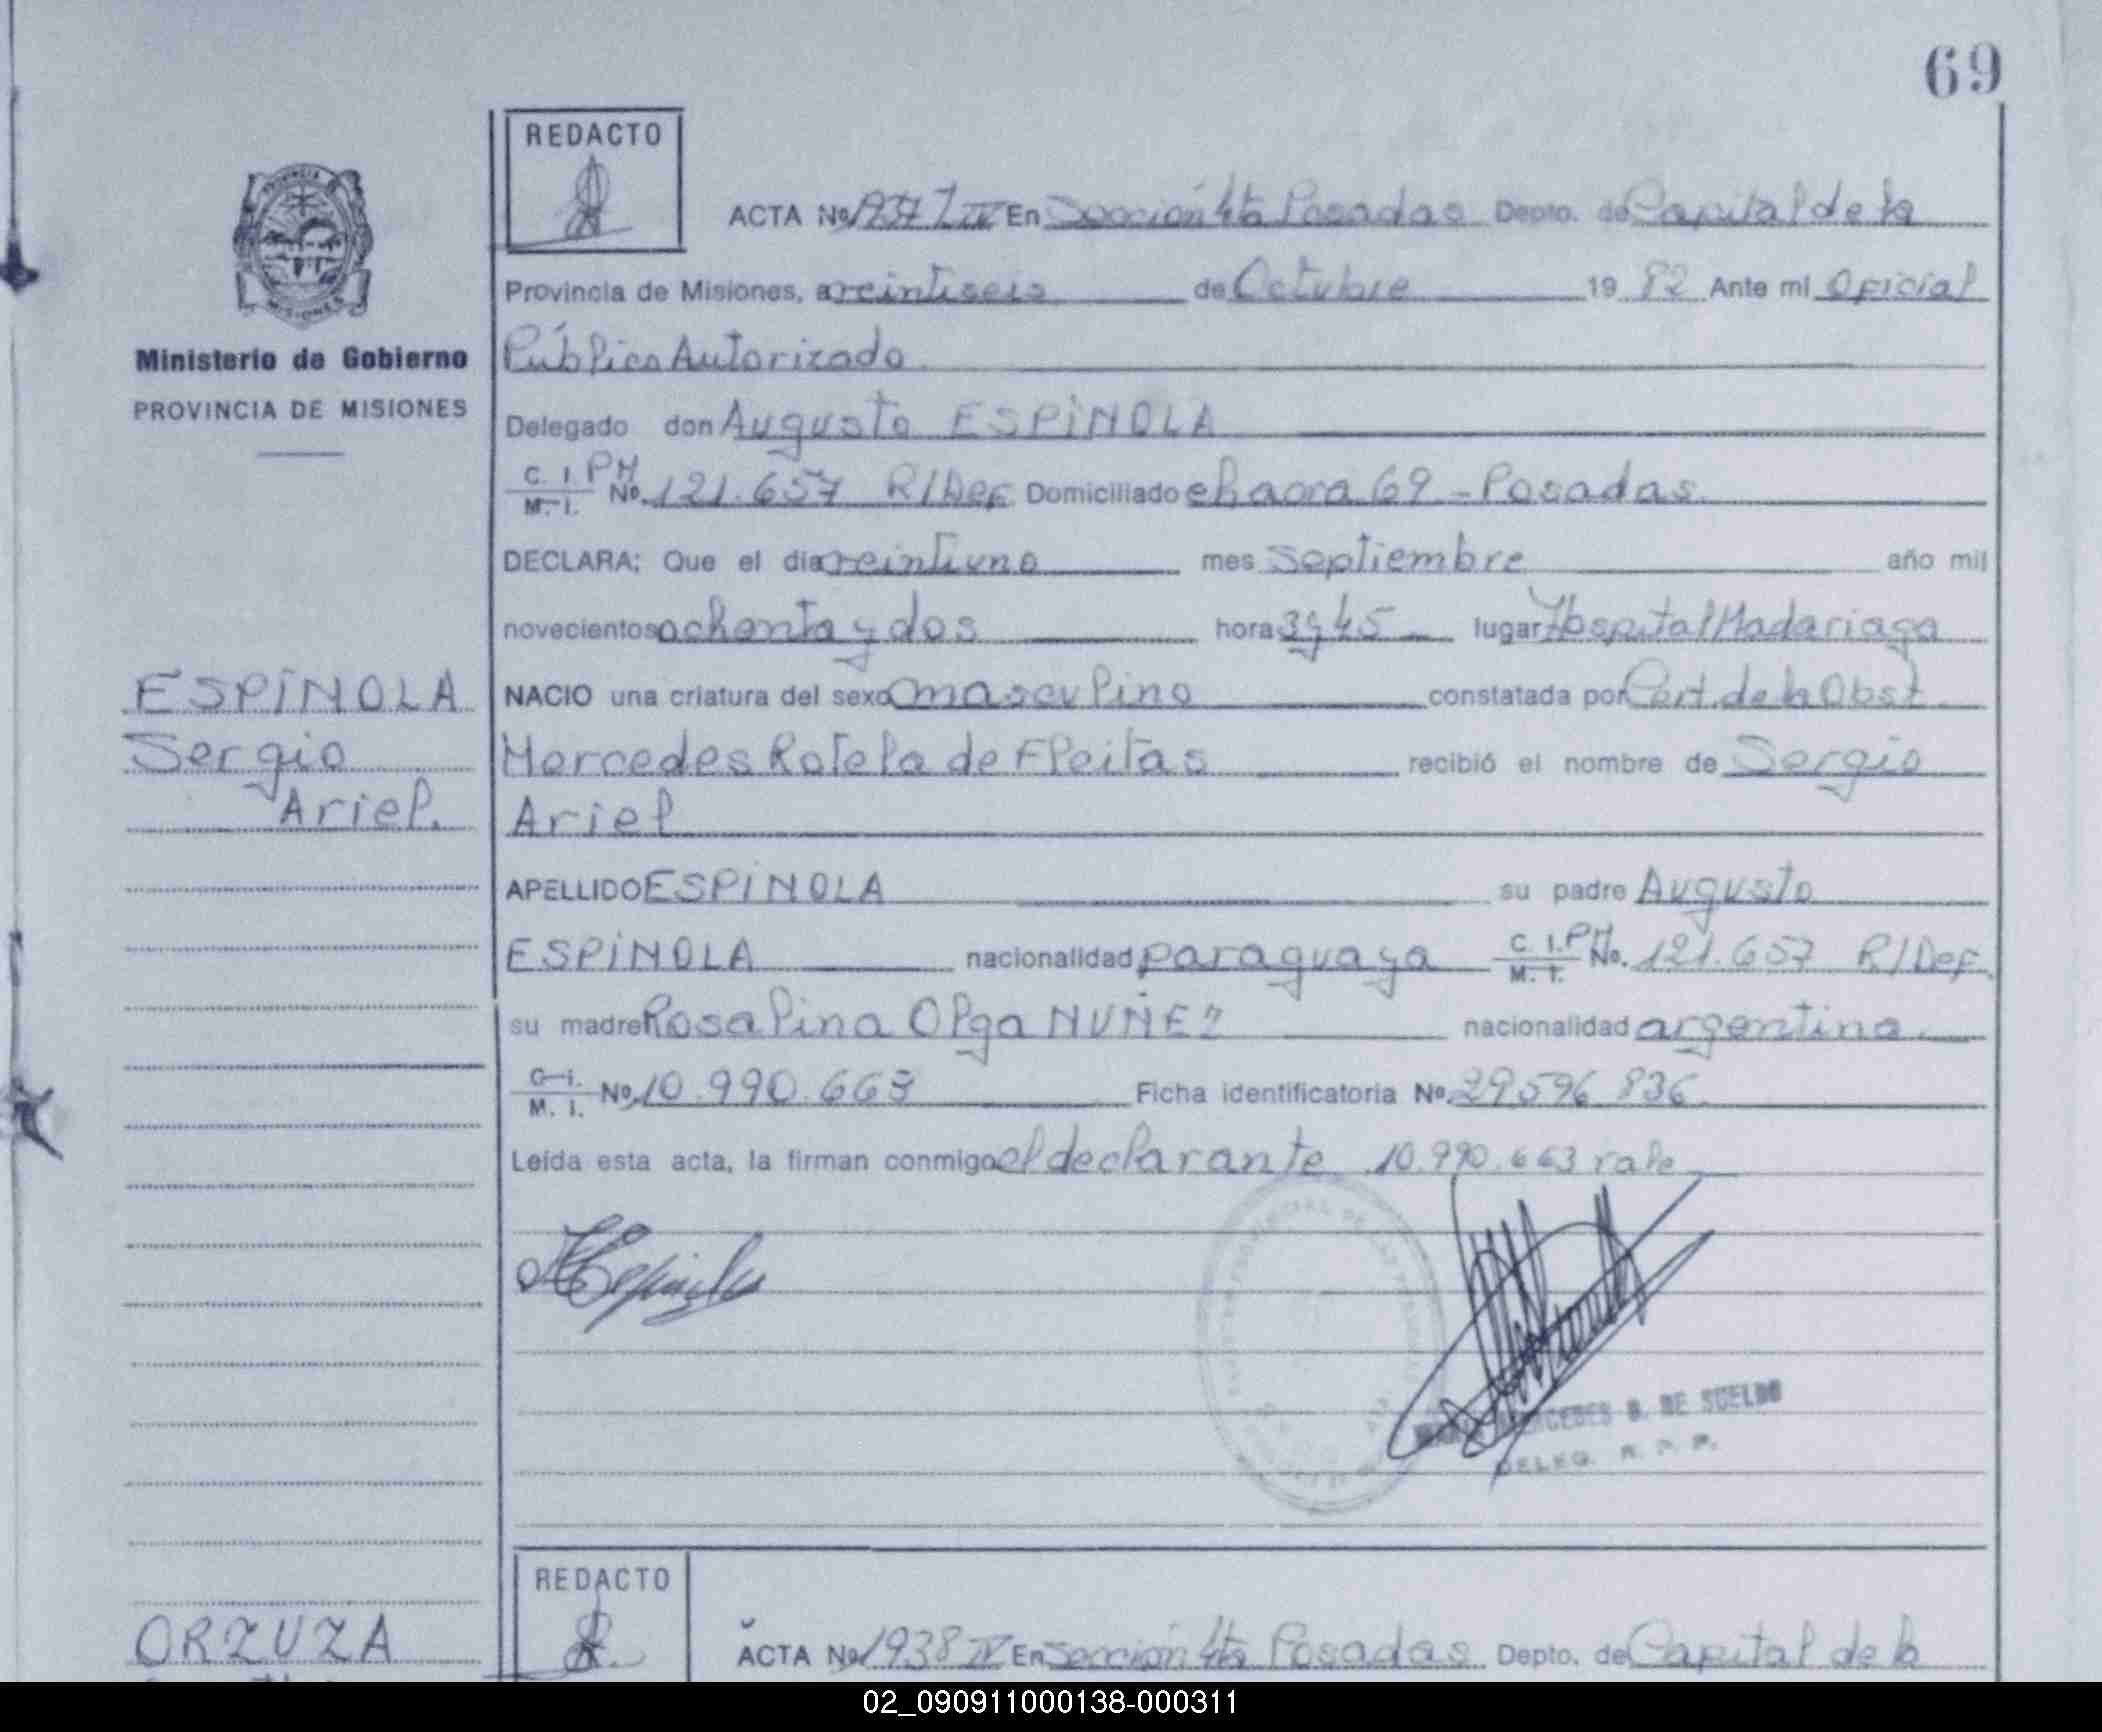 69
REDACTO
ACTA Nº 1937 T IV En Sección 4ta Posadas Depto. de Capital de la
Provincia de Misiones, a veintiseis de Octubre 19 82 Ante mi Oficial
Ministerio de Gobierno
Público Autorizado
PROVINCIA DE MISIONES
Delegado don Augusto ESPÍNOLA
C. I. PM
M. I. Nº 121.657 R/Def. Domiciliado chacra 69 - Posadas.
DECLARA; Que el dia veintiuno mes septiembre año mil
novecientos ochenta y dos hora 3y45 lugar Hospital Madariaga
ESPÍNOLA
NACIO una criatura del sexo masculino constatada por Cert. de la Obst.
Sergio
Mercedes Rotela de Fleitas recibió el nombre de Sergio
Ariel.
Ariel
APELLIDO ESPÍNOLA su padre Augusto
ESPÍNOLA nacionalidad paraguaya C. I. PM
M. I. No. 121.657 R/Def.
su madre Rosalina Olga NUÑEZ nacionalidad argentina.
C. I.
M. I. Nº 10.990.663 Ficha identificatoria Nº 29596 836
Leída esta acta, la firman conmigo el declarante 10.990.663 vale
MERCEDES B. DE SUELDO
DELEG. R. P. P.
REDACTO
ORZUZA
ACTA Nº 1938 IV En Sección 4ta Posadas Depto. de Capital de la
02_090911000138-000311